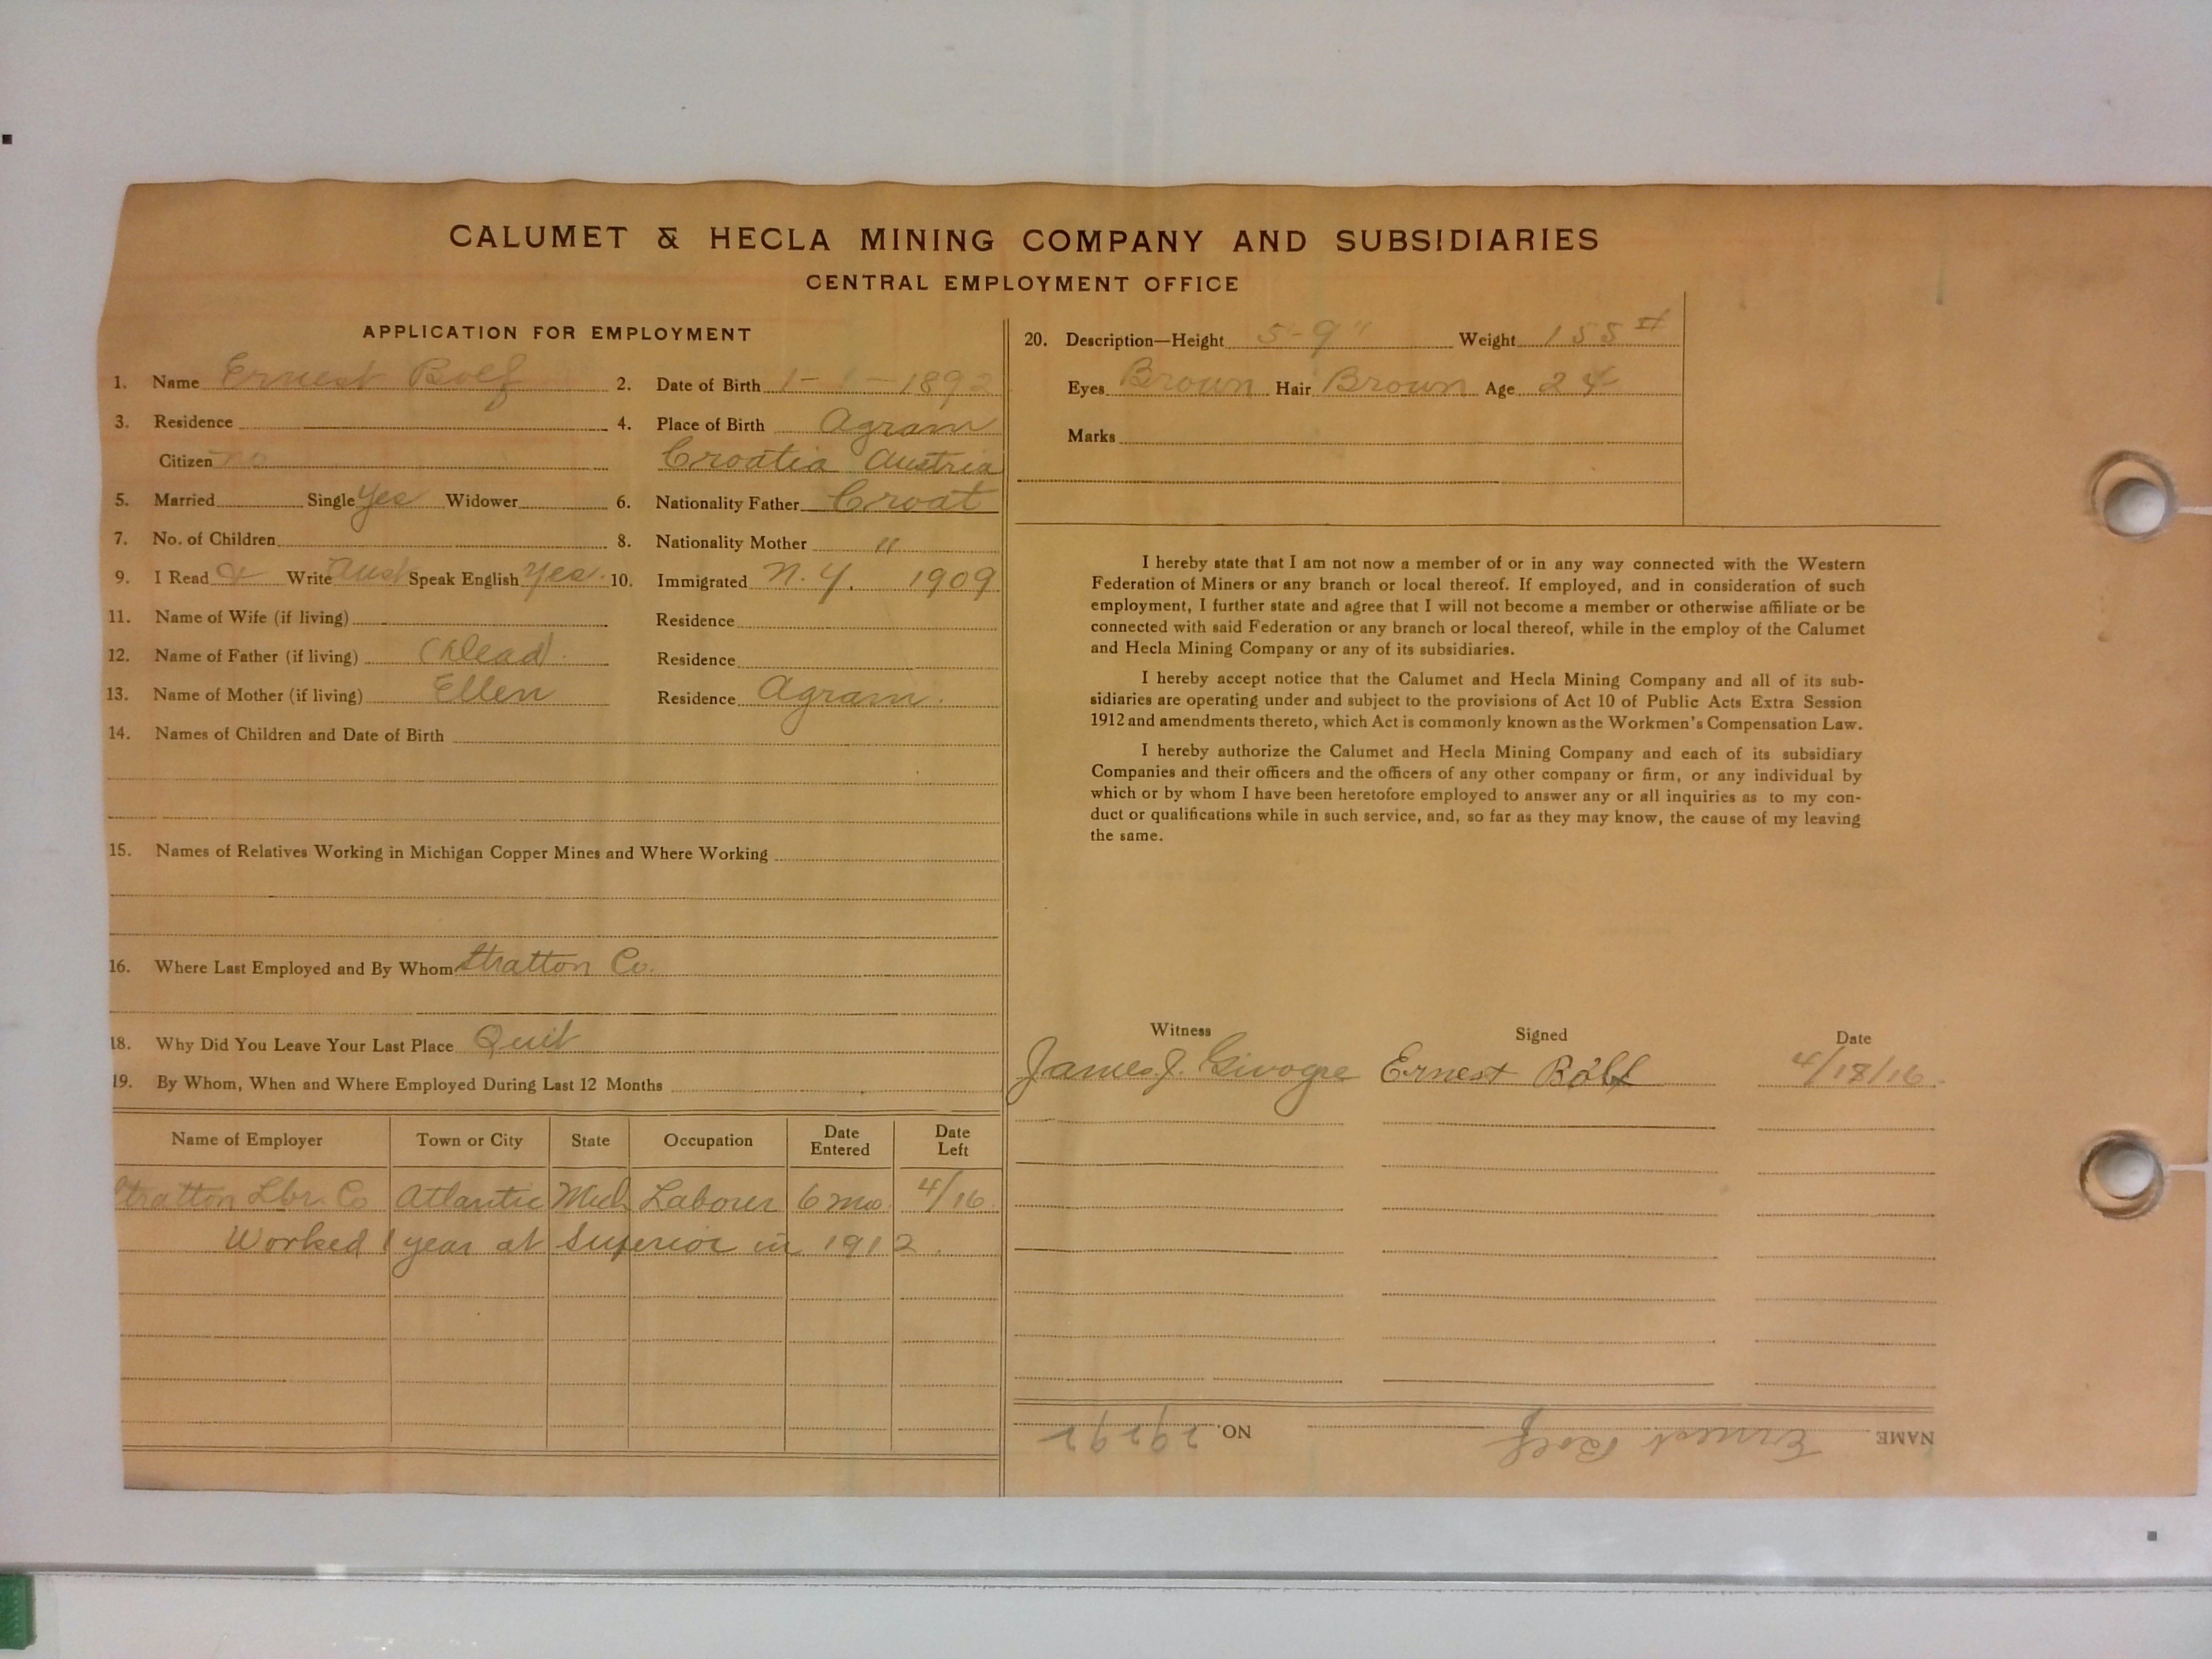 CALUMET & HECLA MINING COMPANY AND SUBSIDIARIES
CENTRAL EMPLOYMENT OFFICE
APPLICATION FOR EMPLOYMENT
1. Name Ernest Bolf 2. Date of Birth 1-1-1892
3. Residence 4. Place of Birth Agram
Citizen no Croatia Austria
5. Married Single Yes Widower 6. Nationality Father Croat
7. No. of Children 8. Nationality Mother "
9. I Read & Write Aust Speak English Yes. 10. Immigrated N.Y. 1909
11. Name of Wife (if living) Residence
12. Name of Father (if living) (Dead) Residence
13. Name of Mother (if living) Ellen Residence Agram.
14. Names of Children and Date of Birth
15. Names of Relatives Working in Michigan Copper Mines and Where Working
16. Where Last Employed and By Whom Stratton Co.
18. Why Did You Leave Your Last Place Quit
19. By Whom, When and Where Employed During Last 12 Months
Name of Employer Town or City State Occupation Date Entered Date Left
Stratton Lbr. Co Atlantic Mich Laborer 6 mo. 4/16.
Worked 1 year at Superior in 1912.
20. Description—Height 5-9" Weight 155#
Eyes Brown Hair Brown Age 24
Marks
I hereby state that I am not now a member of or in any way connected with the Western
Federation of Miners or any branch or local thereof. If employed, and in consideration of such
employment, I further state and agree that I will not become a member or otherwise affiliate or be
connected with said Federation or any branch or local thereof, while in the employ of the Calumet
and Hecla Mining Company or any of its subsidiaries.
I hereby accept notice that the Calumet and Hecla Mining Company and all of its sub-
sidiaries are operating under and subject to the provisions of Act 10 of Public Acts Extra Session
1912 and amendments thereto, which Act is commonly known as the Workmen's Compensation Law.
I hereby authorize the Calumet and Hecla Mining Company and each of its subsidiary
Companies and their officers and the officers of any other company or firm, or any individual by
which or by whom I have been heretofore employed to answer any or all inquiries as to my con-
duct or qualifications while in such service, and, so far as they may know, the cause of my leaving
the same.
Witness Signed Date
James J. Ernest Bolf 4/18/16.
NAME Ernest Bolf NO. 29292